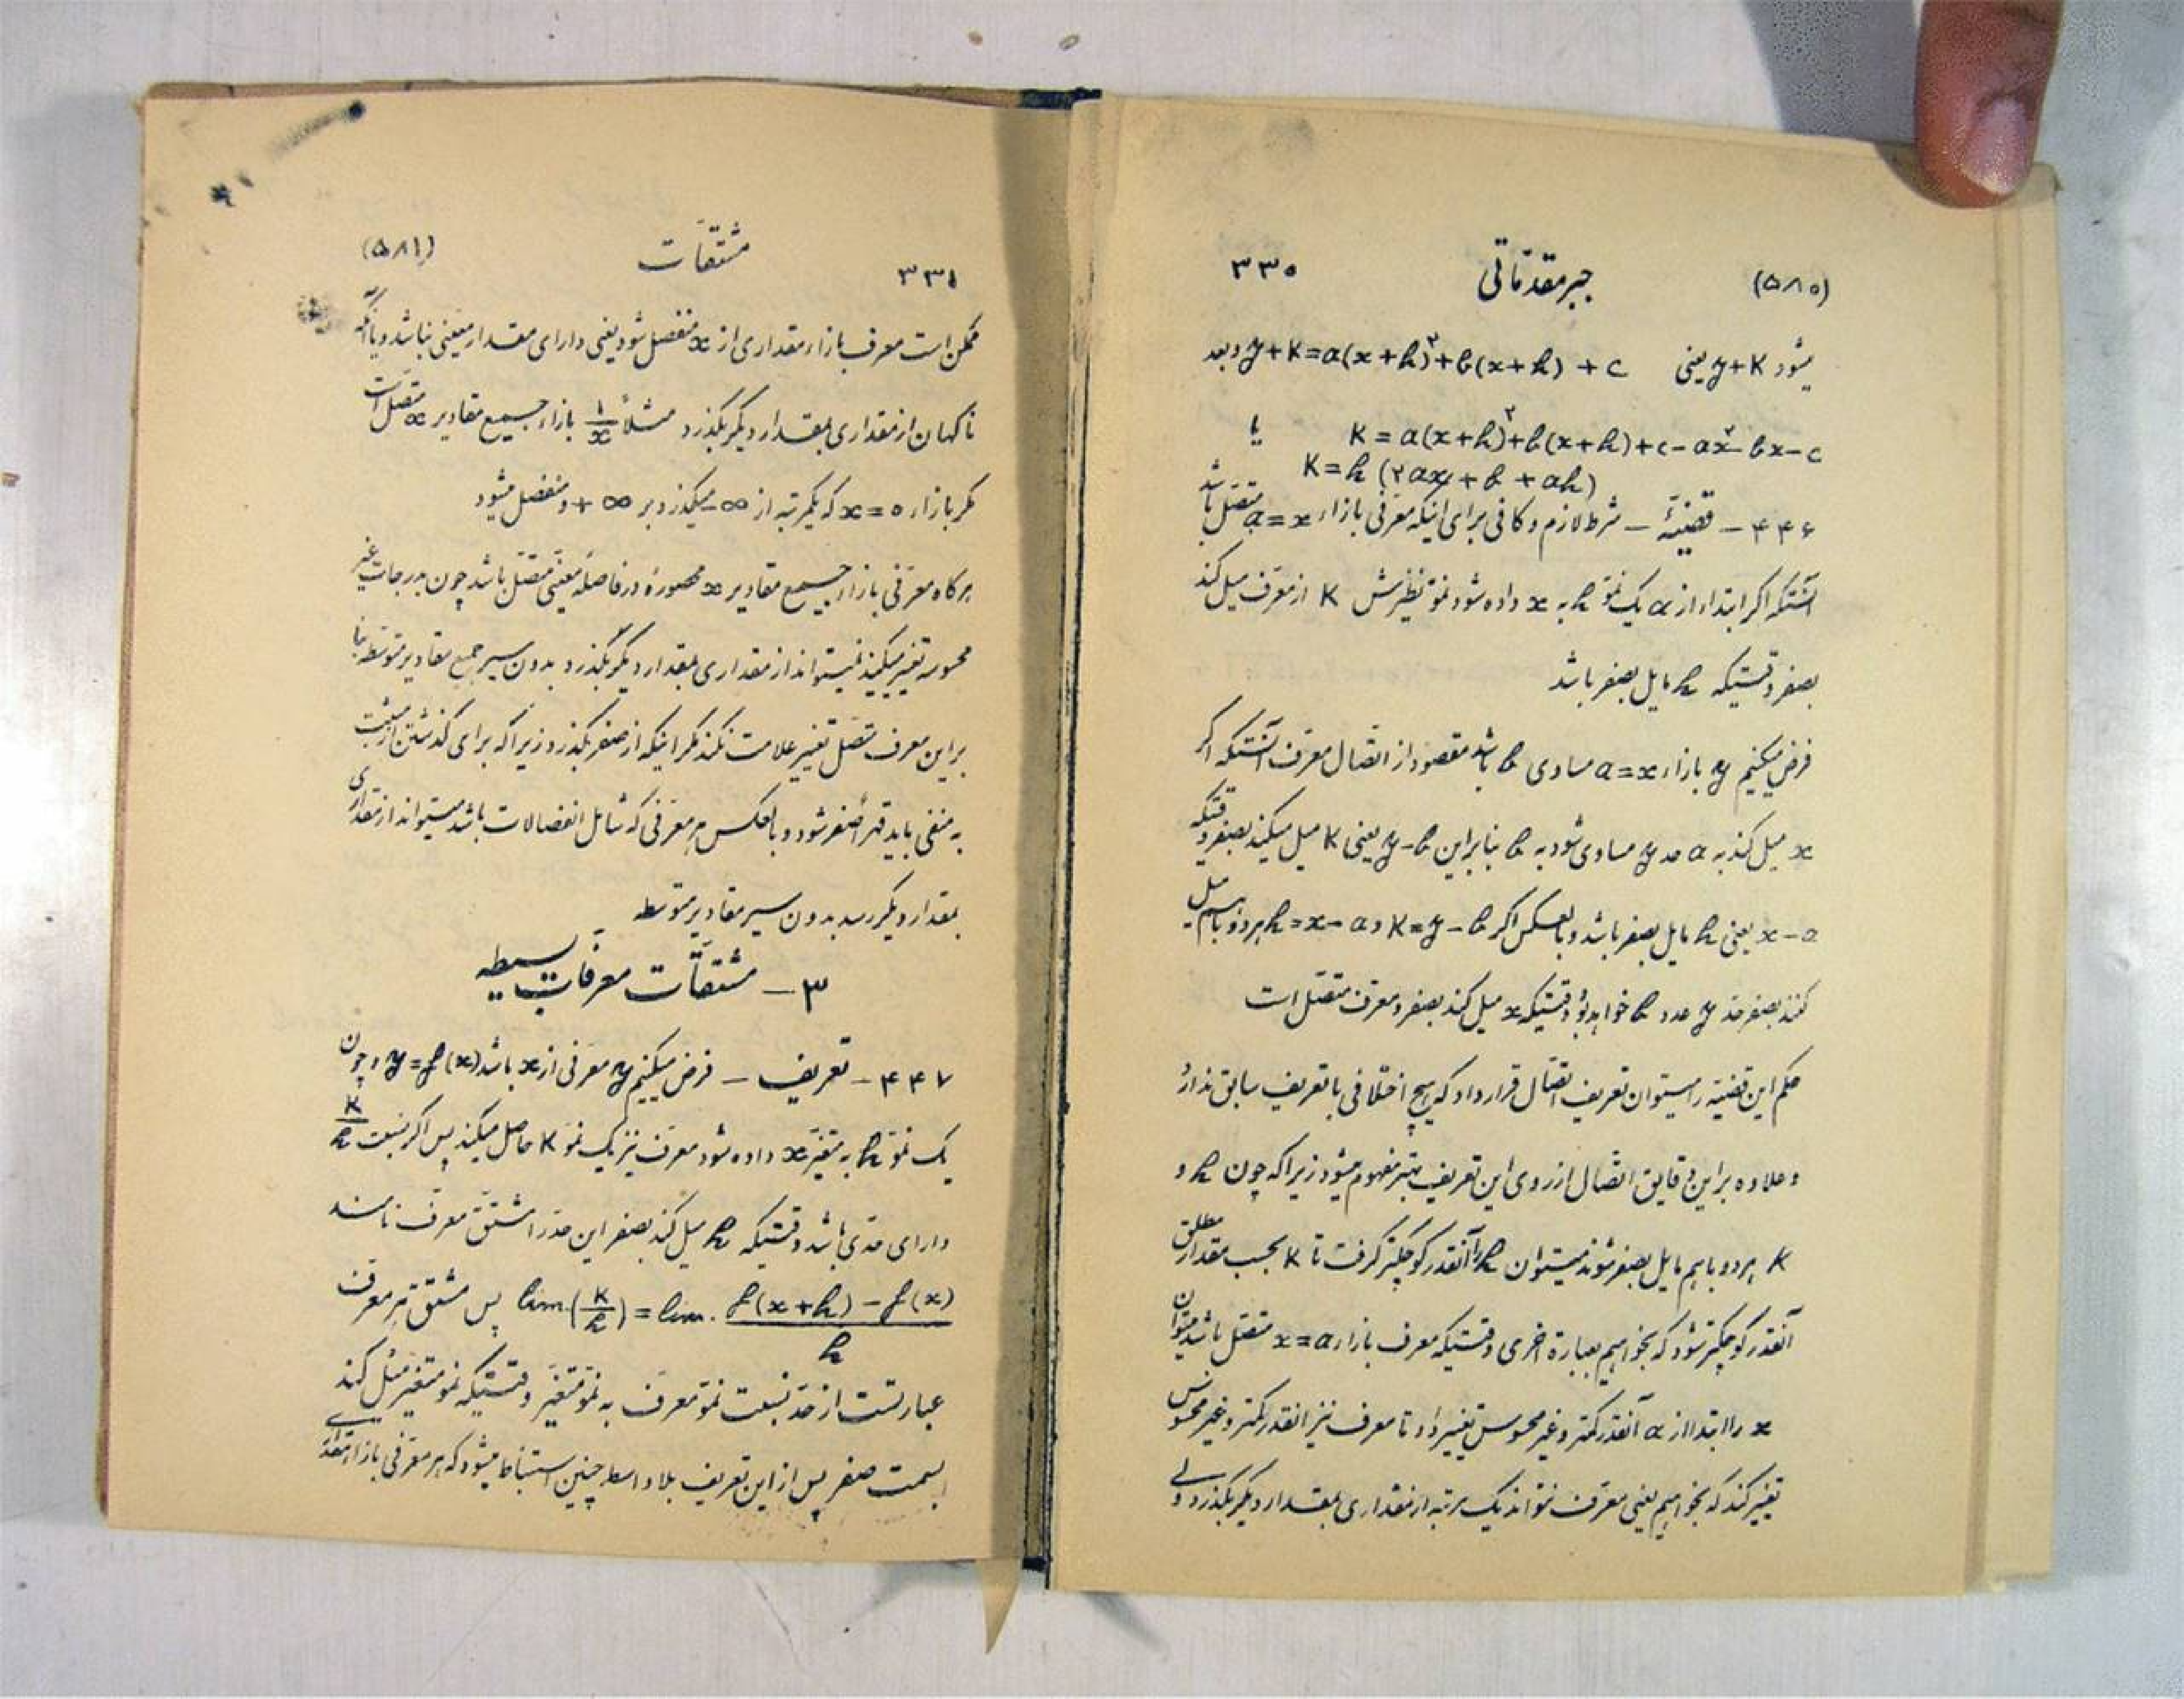 (۵۸۰) جبر مقدّماتی ۳۳۰
میشود y+K یعنی y+K=a(x+h)²+b(x+h)+c و بعد
K=a(x+h)²+b(x+h)+c-ax²-bx-c یا
K=h(۲ax+b+ah)
۴۴۶ - قضیّهٔ - شرط لازم و کافی برای اینکه معرّفی بازاء x=a متصّل باشد
آنستکه اگر ابتداء از a یک نموّ h به x داده شود نموّ نظیرش K از معرّف میل کند
بصفر وقتیکه h مایل بصفر باشد
فرض میکنیم y بازاء x=a مساوی b باشد مقصود از اتّصال معرّف آنستکه اگر
x میل کند به a حد y مساوی شود به b بنابراین y-b یعنی K میل میکند بصفر وقتیکه
x-a یعنی h مایل بصفر باشد و بالعکس اگر K=y-b و h=x-a هر دو باهم میل
کنند بصفر حدّ y عدد b خواهد بود وقتیکه x میل کند بصفر و معرّف متصّل است
حکم این قضیّه را میتوان تعریف اتّصال قرار داد که هیچ اختلافی با تعریف سابق ندارد
و علاوه بر این دقایق اتّصال از روی این تعریف بهتر مفهوم میشود زیرا که چون h و
K هر دو باهم مایل بصفر شوند میتوان h را آنقدر کوچکتر گرفت تا K بحسب مقدار مطلق
آنقدر کوچکتر شود که بخواهیم بعبارة اخری وقتیکه معرف بازاء x=a متصّل باشد میتوان
x را ابتدا از a آنقدر کمتر و غیر محسوس تغییر داد تا معرف نیز آنقدر کمتر و غیر محسوس
تغییر کند که بخواهیم یعنی معرّف نتواند یک مرتبه از مقداری بمقدار دیگر بگذرد ولی
۳۳۱ مشتقّات (۵۸۱)
ممکن است معرف بازاء مقداری از x منفصل شود یعنی دارای مقدار معیّنی نباشد و یا آنکه
ناگهان از مقداری بمقدار دیگر بگذرد مثلاً ۱/x بازاء جمیع مقادیر x متصّل است
مگر بازاء x=۰ که یکمرتبه از -∞ میگذرد بر +∞ و منفصل میشود
هرگاه معرّفی بازاء جمیع مقادیر x محصورهٔ در فاصلهٔ معیّنی متصّل باشد چون بدرجات غیر
محسوسه تغییر میکند نمیتواند از مقداری بمقدار دیگر بگذرد بدون سیر جمیع مقادیر متوسّطه بنا
براین معرف متصّل تغییر علامت نکند مگر اینکه از صفر بگذرد زیرا که برای گذشتن از مثبت
به منفی باید قهراً صفر شود و بالعکس هر معرّفی که شامل انفصالات باشد میتواند از مقداری
بمقدار دیگر رسد بدون سیر مقادیر متوسّطه
۳ - مشتقّات معرفات بسیطه
۴۴۷ - تعریف - فرض میکنیم y معرّفی از x باشد y=f(x) و چون
یک نموّ h به متغیّر x داده شود معرّف نیز یک نموّ K حاصل میکند پس اگر نسبت K/h
دارای حدّی باشد وقتیکه h میل کند بصفر این حدّ را مشتقّ معرّف نامند
lim.(K/h)=lim. f(x+h)-f(x)/h پس مشتقّ هر معرف
عبارتست از حدّ نسبت نموّ معرّف به نموّ متغیّر وقتیکه نموّ متغیّر میل کند
بسمت صفر پس از این تعریف بلاواسطه چنین استنباط میشود که هر معرّفی بازاء